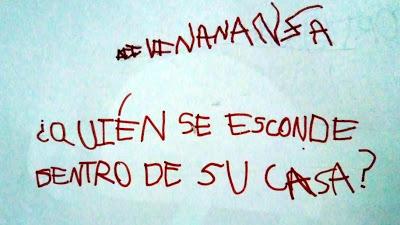 ¿QUIÉN SE ESCONDE
DENTRO DE SU CASA?